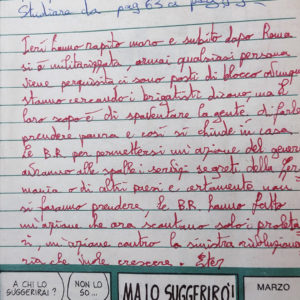 Studiare da pag 63 a pag
Ieri hanno rapito moro e subito dopo Roma
si è militarizzata, ormai qualsiasi persona
viene perquisita ci sono posti di blocco ovunque
stanno cercando i brigatisti dicono, ma il
loro scopo è di spaventare la gente, di farle
prendere paura e così si chiude in casa,
le B.R per permettersi un'azione del genere
avranno alle spalle i servizi segreti della Ger
mania o di altri paesi e certamente non
si faranno prendere, le B.R. hanno fatto
un'azione che ora scontano solo i proleta
ri, un'azione contro la sinistra rivoluziona
ria che vuole crescere.
A CHI LO
SUGGERIRAI?
NON LO
SO...
MA LO SUGGERIRÒ!
MARZO